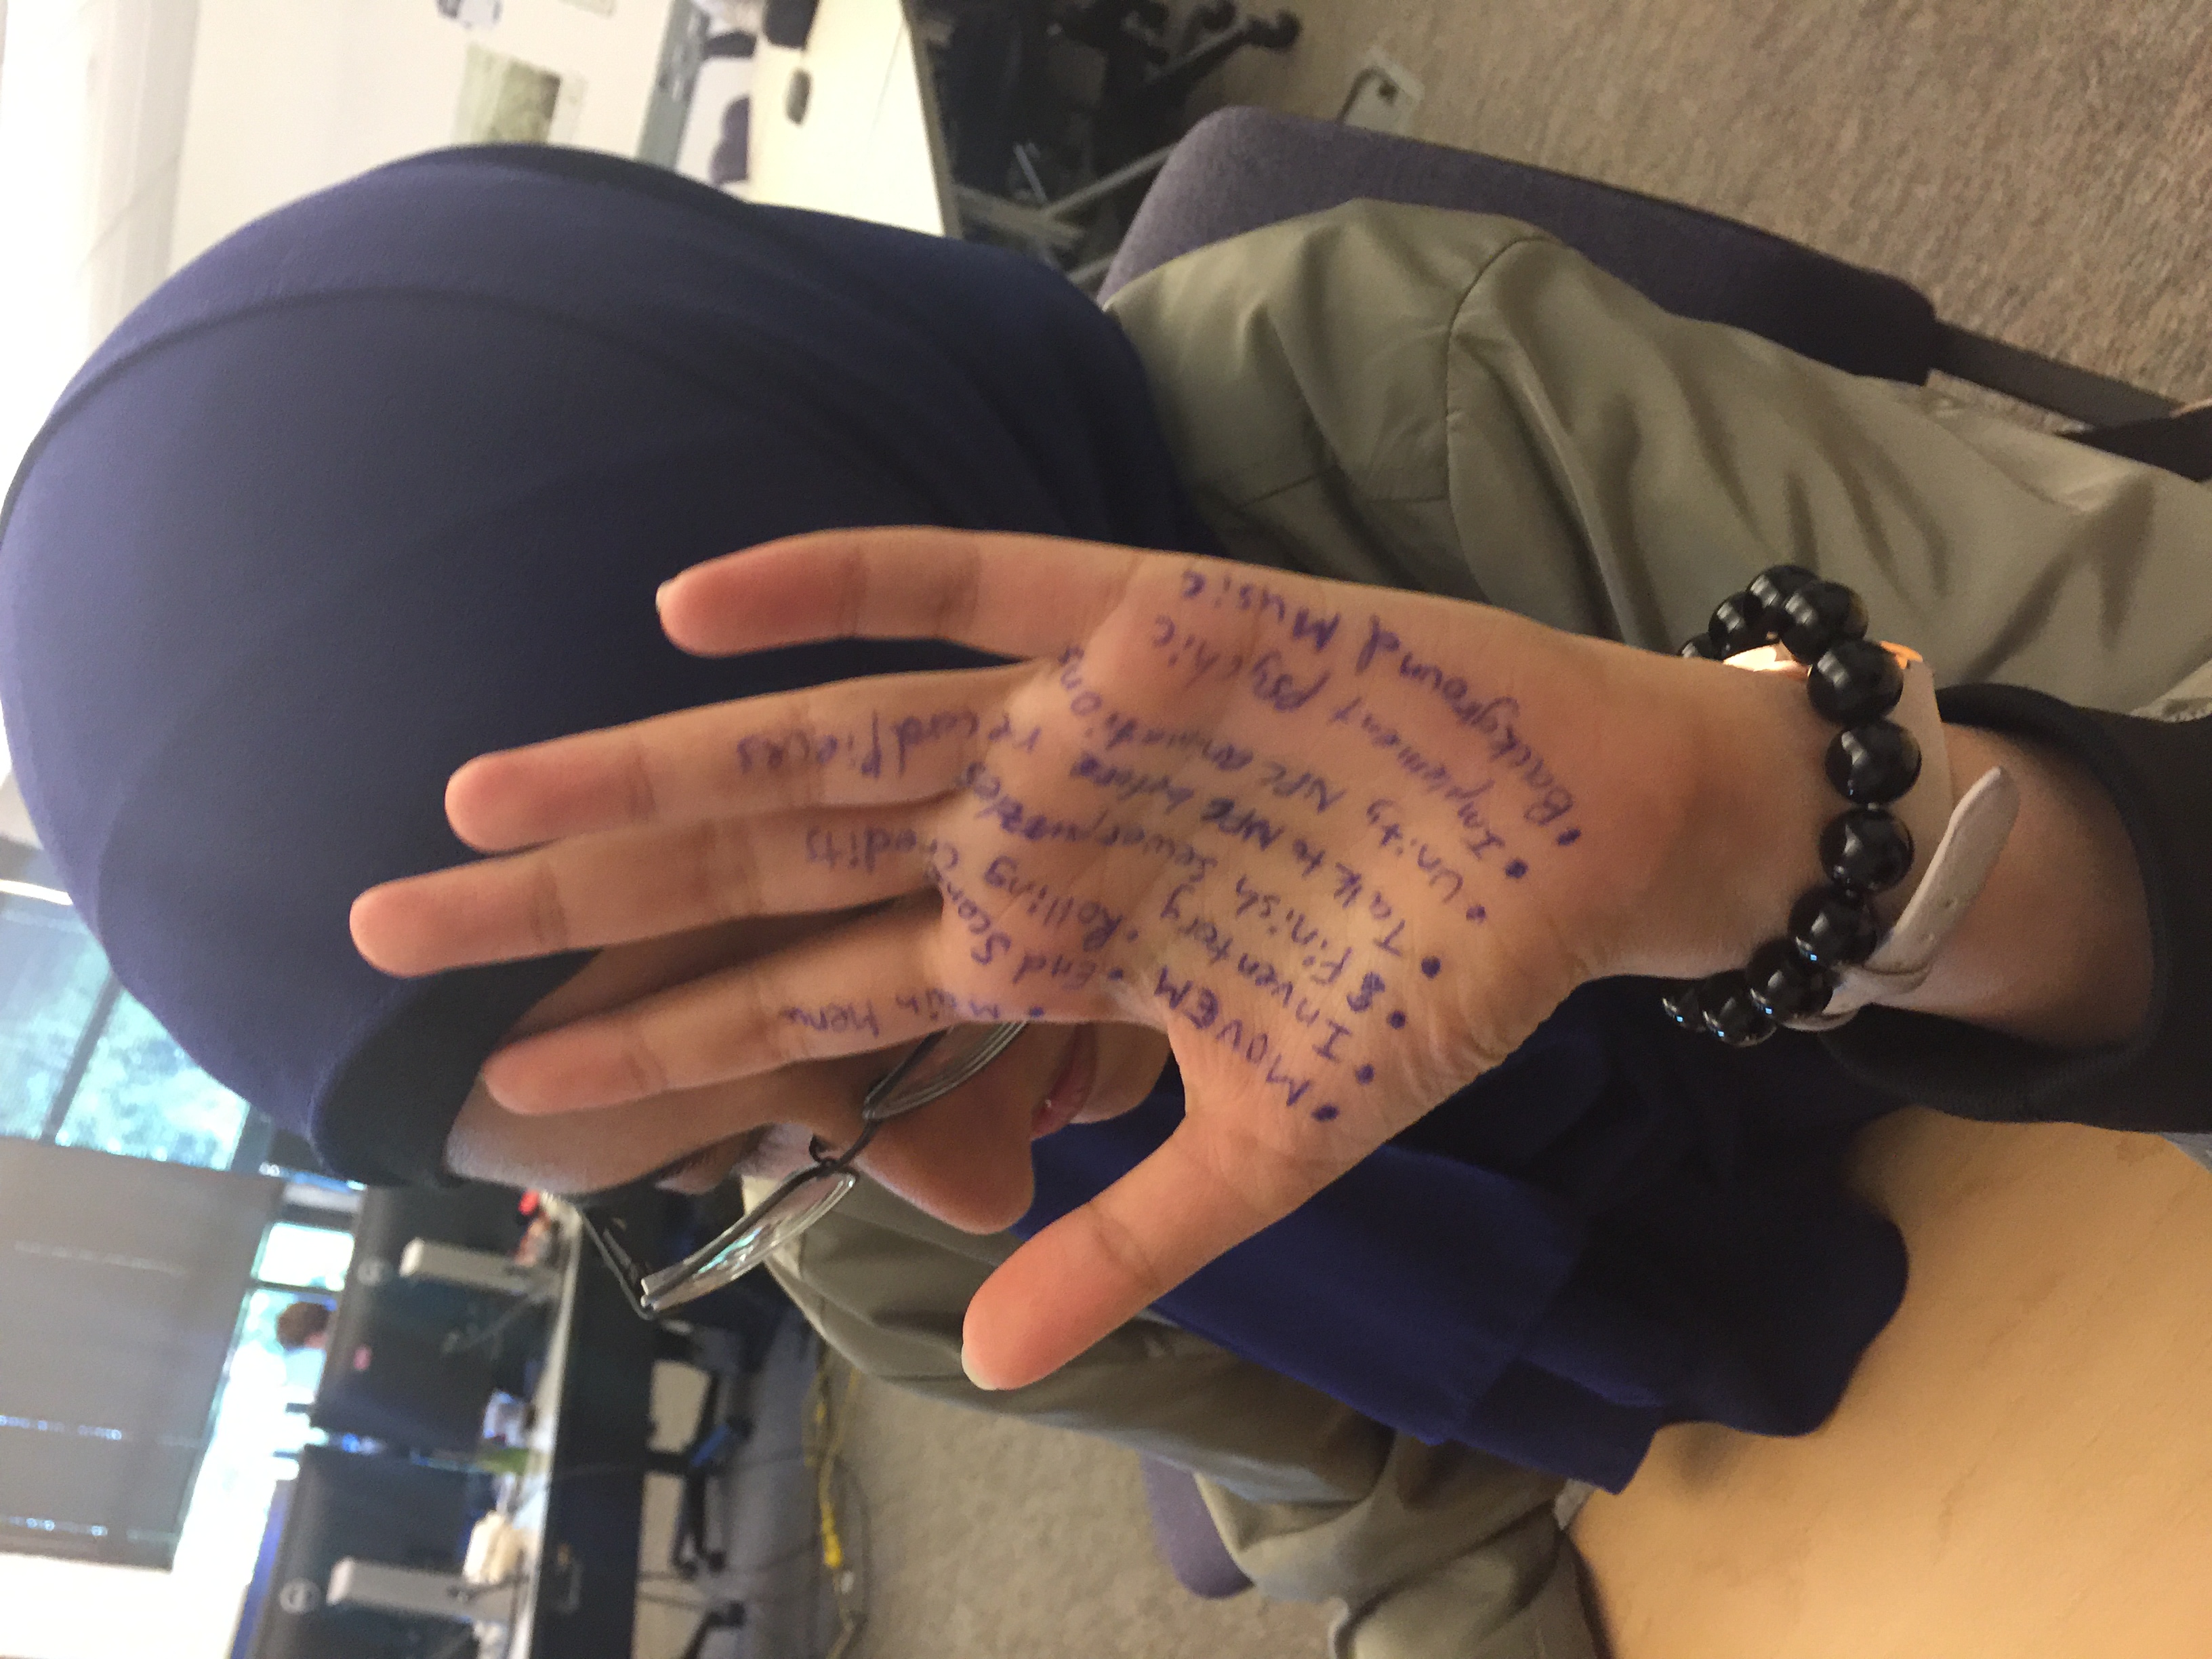 • Background Music
• Implement Psychic
• Unity NPC animations
• Talk to NPC before record pieces
• Finish sewer puzzles
• Inventory
• MOVEM
• Rolling credits
• End Scene
• Main Menu